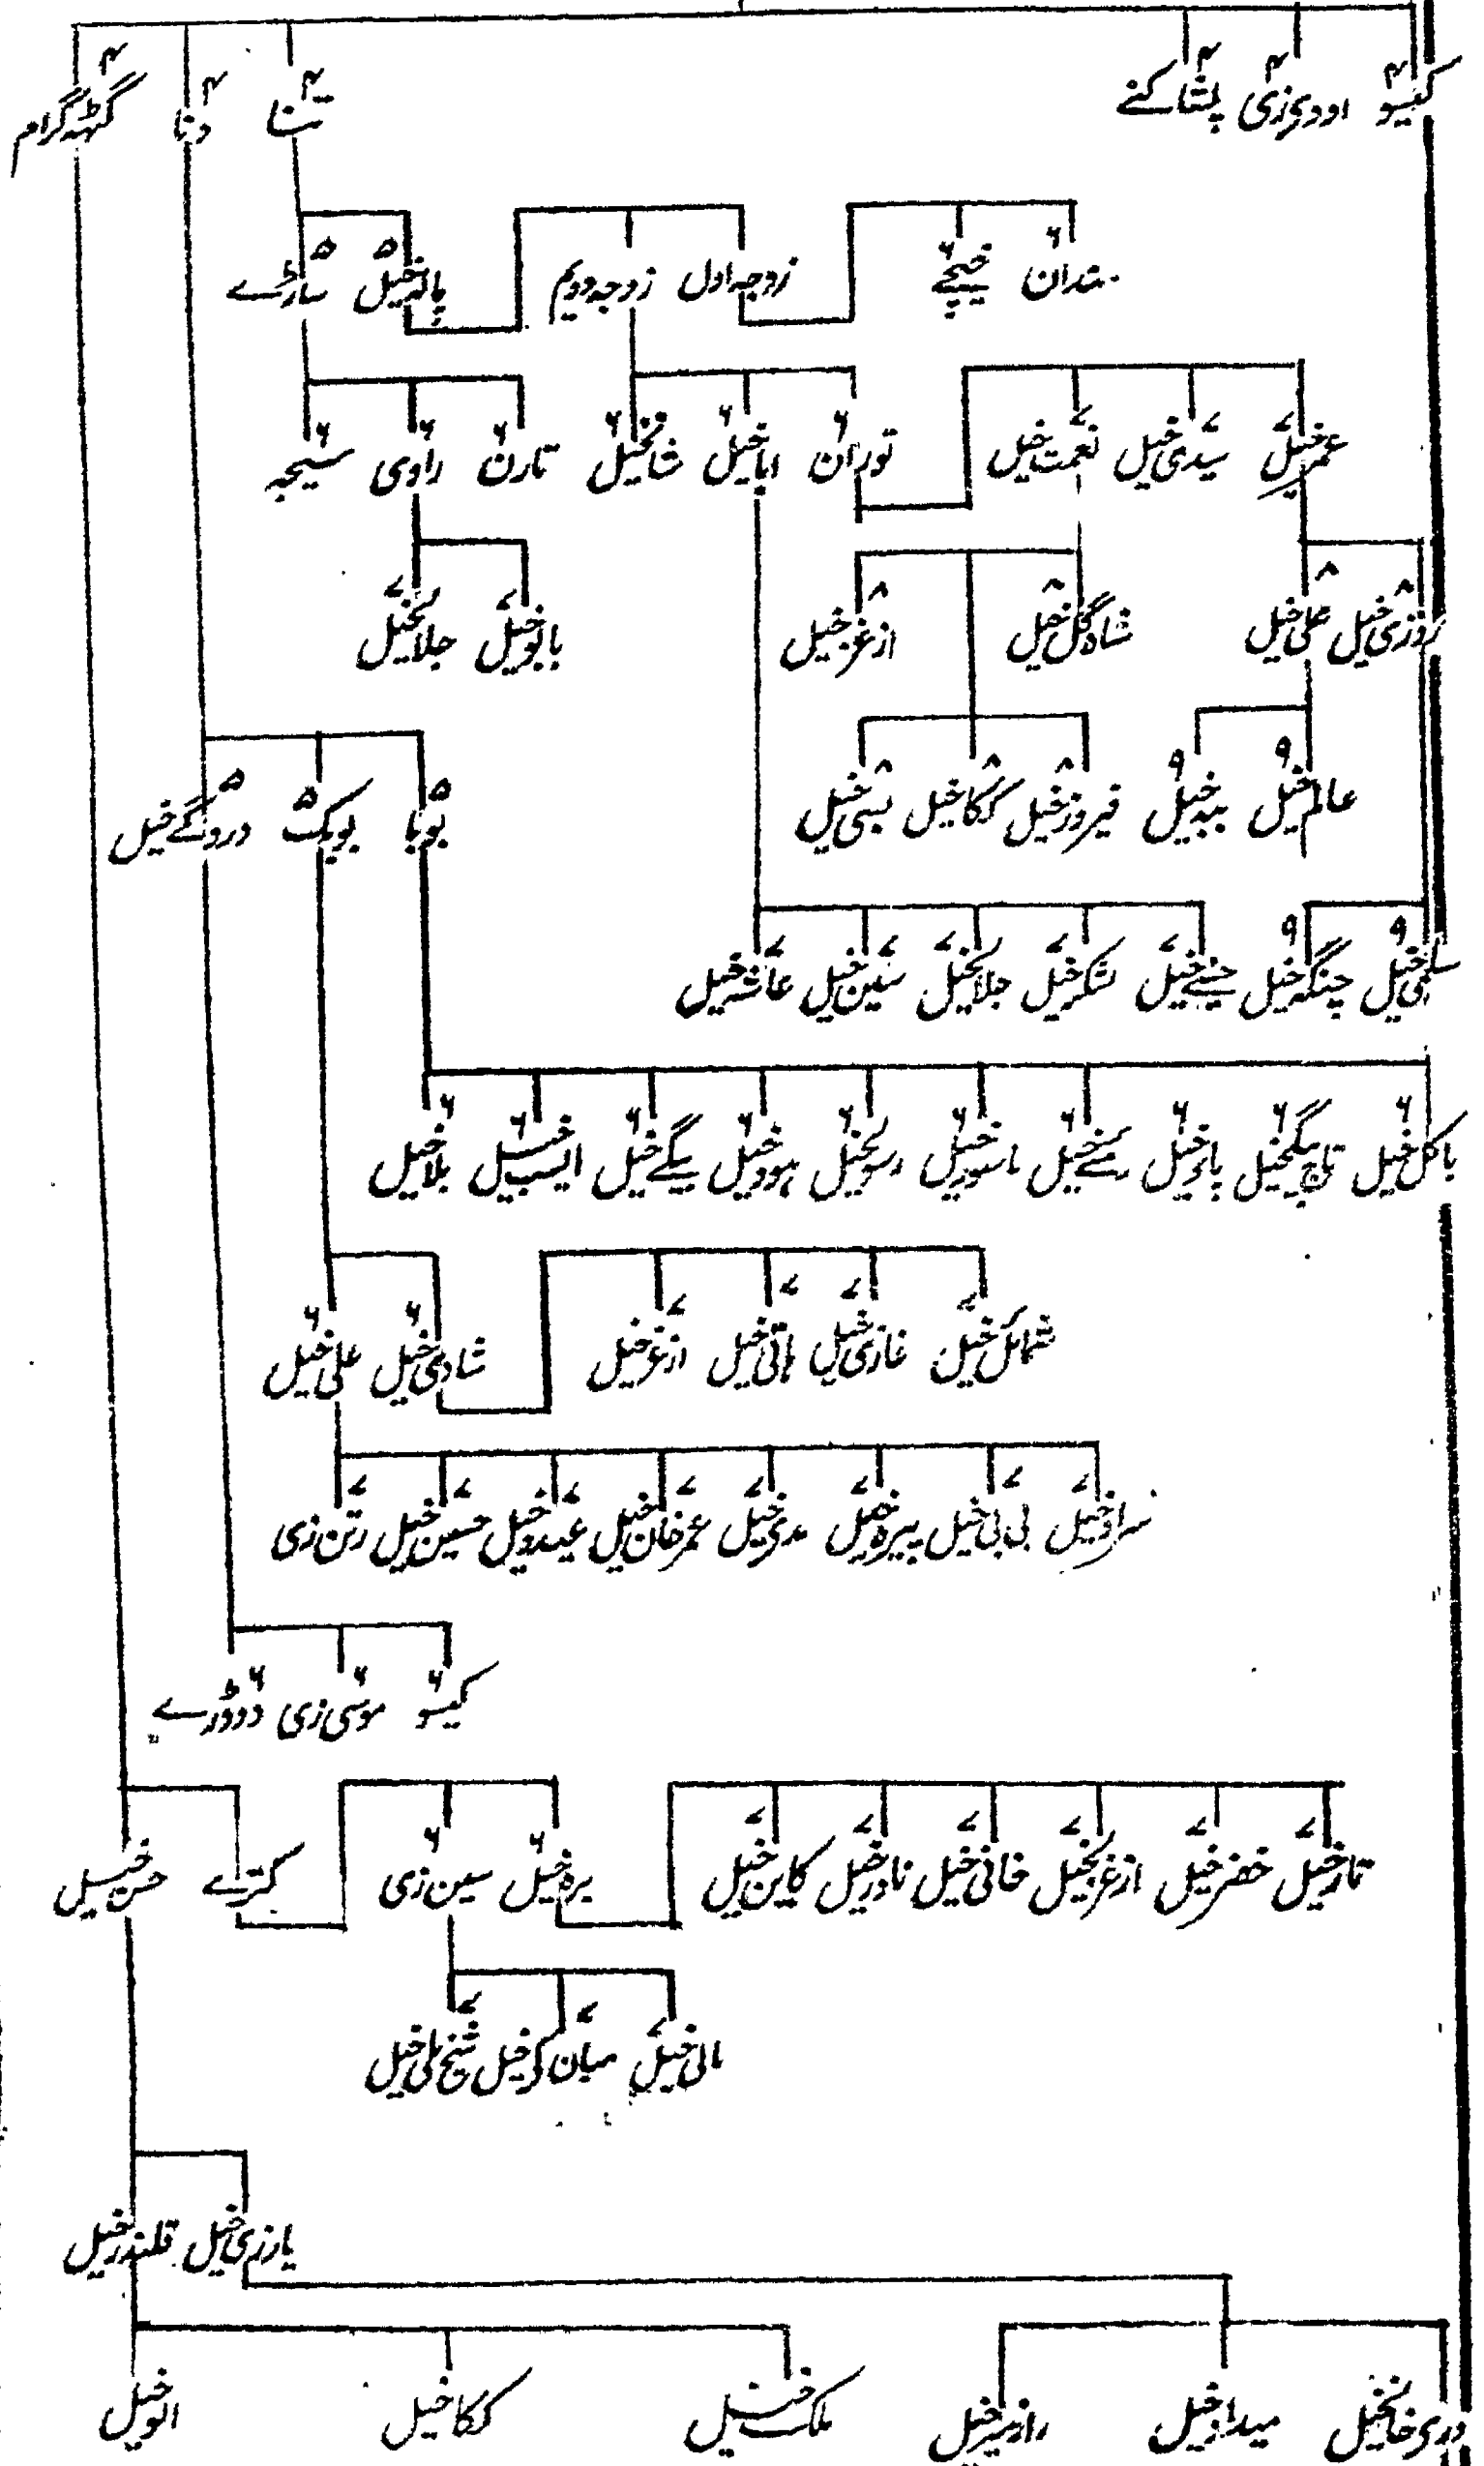 کیسو ۴ اودی زی ۴ پشاکنے ۴ تنا ۴ دنا ۴ گہڑگرام ۴
مندان ۶ خیچے ۶ زوجہ اول زوجہ دویم پائندخیل ۵ ساڑے ۵
عمرخیل ۷ سیدی خیل ۷ نعمت خیل ۷ توران ۶ اباخیل ۶ شانخیل ۶ تارن ۶ راوی ۶ سیجہ ۶
روزی خیل ۸ علی خیل ۸ شاہ گل خیل ۸ ازغرخیل ۸ بابوخیل ۷ جلالخیل ۷
عالم خیل ۹ بیدخیل ۹ فیروزخیل ۸ ککاخیل ۸ بستی خیل ۸ بوبا ۵ بوبک ۵ درونگے خیل ۵
سلیمی خیل ۹ چنگہ خیل ۹ خیل ۷ لشکرخیل ۷ جلالخیل ۷ سین خیل ۷ عائشہ خیل ۷
باکل خیل ۶ تاج بیگخیل ۶ پائوخیل ۶ خیل ۶ ماسورخیل ۶ رسولخیل ۶ ہودخیل ۶ بیگے خیل ۶ ایسب خیل ۶ بلاخیل ۶
شمائل خیل ۷ غازی خیل ۷ ہاتی خیل ۷ ازغرخیل ۷ شادی خیل ۶ علی خیل ۶
سراوخیل ۷ بی بی خیل ۷ پیرہ خیل ۷ مدی خیل ۷ عمرخان خیل ۷ عیدوخیل ۷ حسین خیل ۷ رتن زی ۷
کیسو ۶ موسی زی ۶ دوڈرے ۶
تازخیل ۷ خضرخیل ۷ ازغرخیل ۷ خانی خیل ۷ نادرخیل ۷ کاین خیل ۷ برہ خیل ۶ سین زی ۶ کترے حسن خیل
مالی خیل ۷ میان کی خیل ۷ شیخ ملی خیل ۷
یارزی خیل قلندرخیل
دری خانخیل میدادخیل رازمیرخیل ملک خیل ککاخیل الوخیل